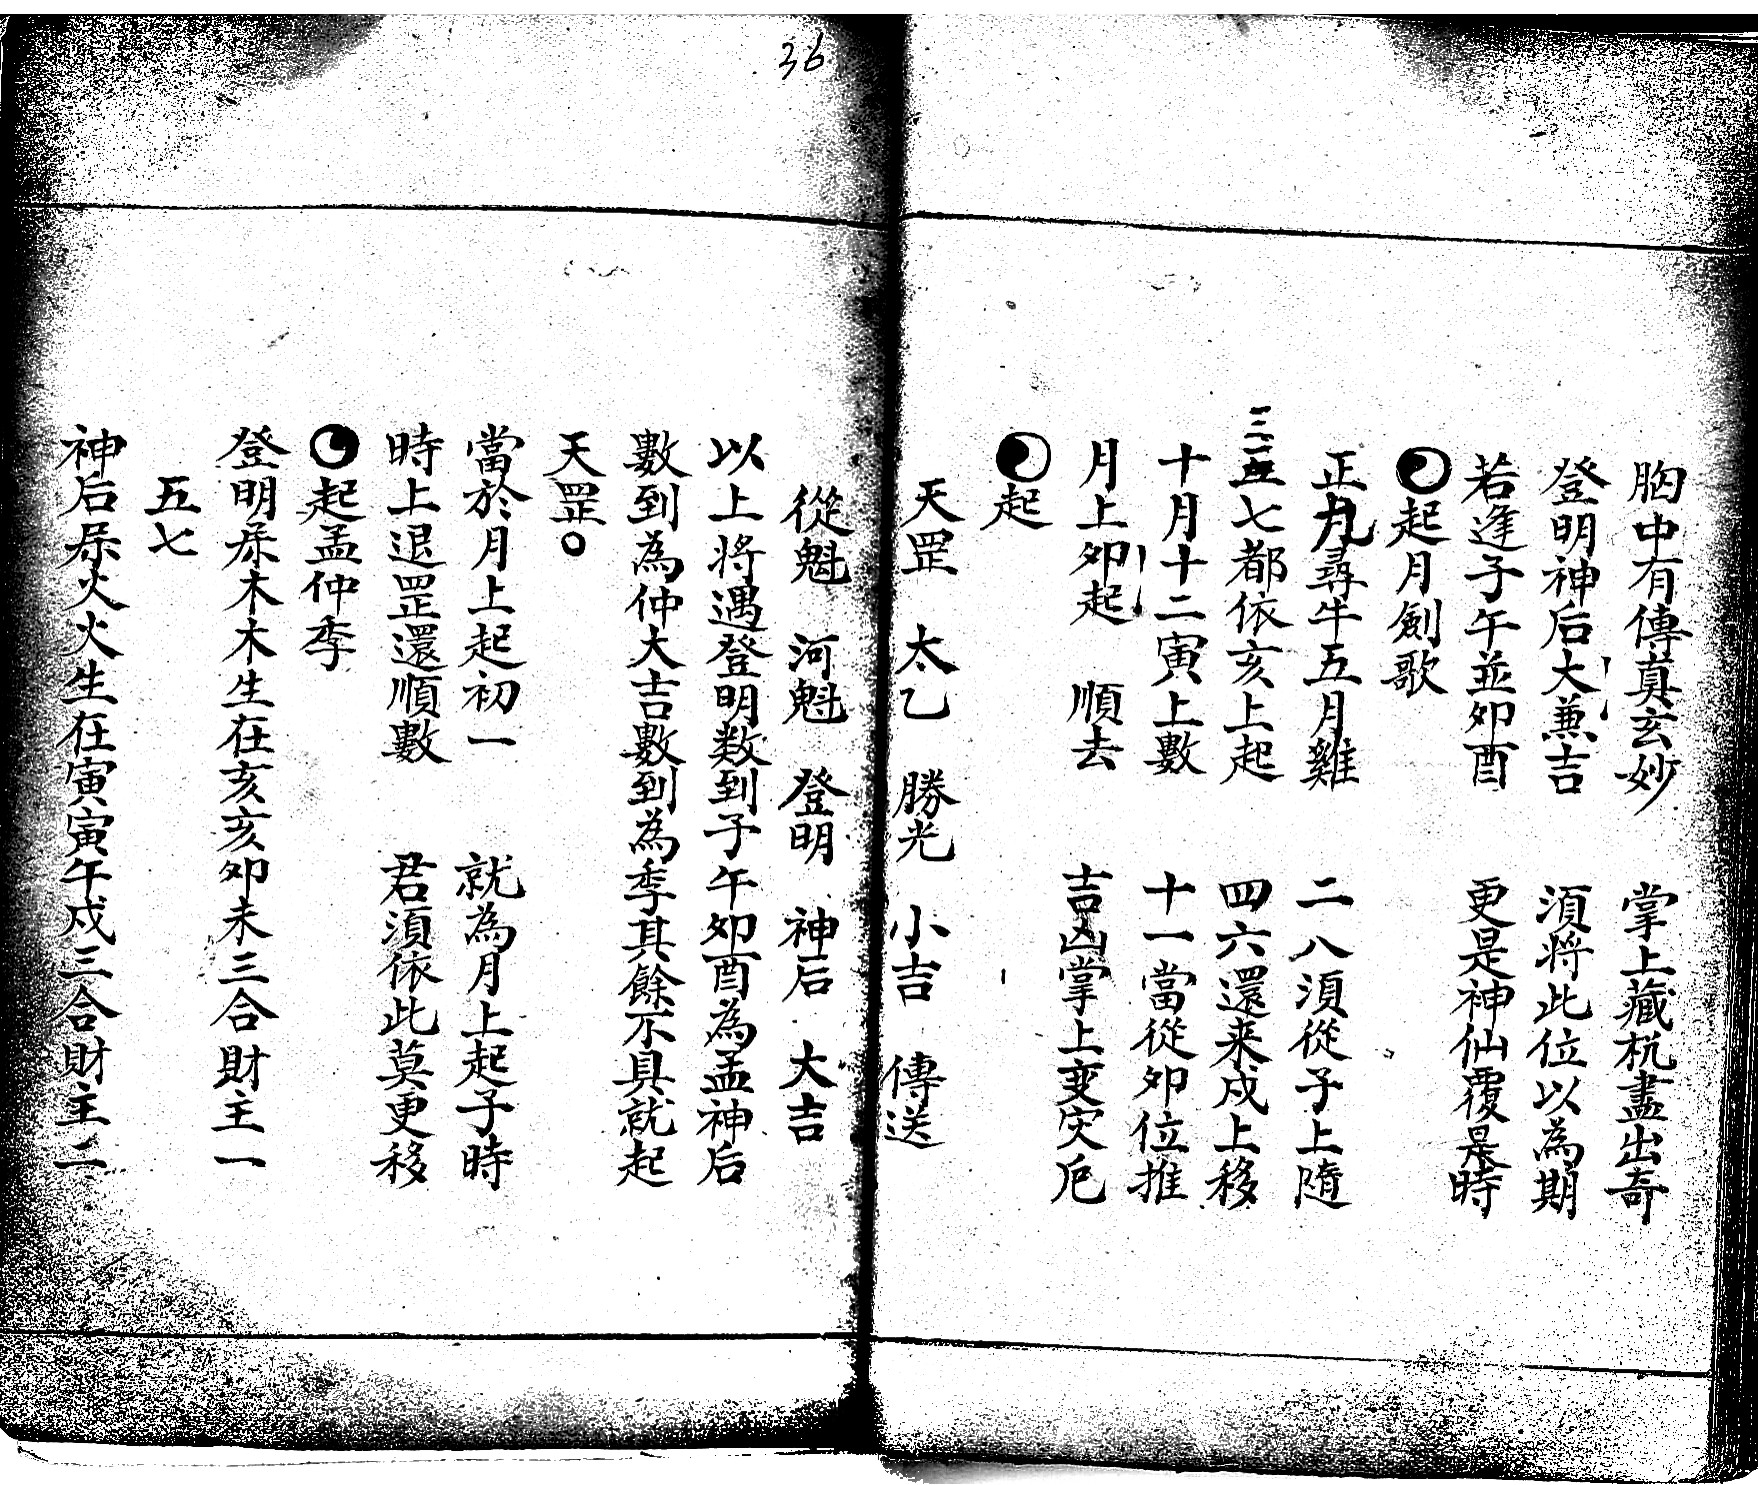 胸中有傳真玄妙 掌上藏杭盡出奇
登明神后大兼吉 須將此位以為期
若逢子午並卯酉 更是神仙覆是時
起月劍歌
正九月尋牛五月雞 二八須從子上隨
三五七都依亥上起 四六還来戌上移
十月十二寅上數 十一當從卯位推
月上卯起 順去 吉凶掌上变灾厄
起
天罡 太乙 勝光 小吉 傳送
36
從魁 河魁 登明 神后 大吉
以上將遇登明数到子午卯酉為孟神后
數到為仲大吉數到為季其餘不具就起
天罡○
當於月上起初一 就為月上起子時
時上退罡還順數 君須依此莫更移
起孟仲季
登明屬木木生在亥亥卯未三合財主一
五七
神后屬火火生在寅寅午戌三合財主二